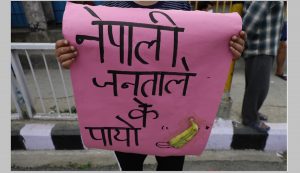 नेपाली
जनताले
के
पायो